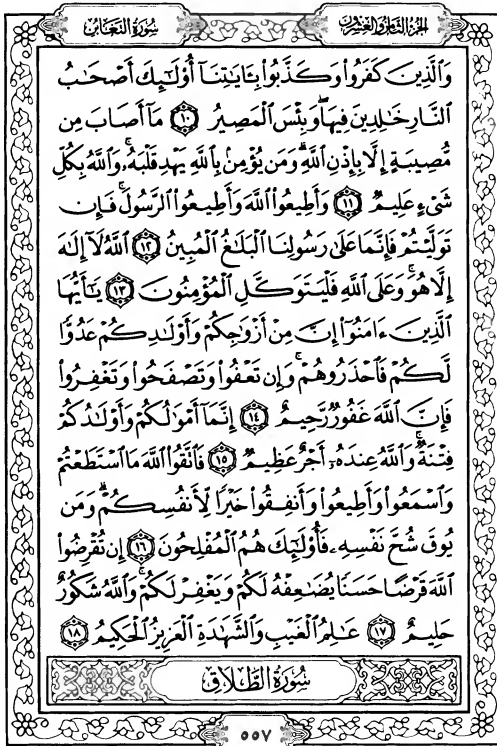 سُورَةُ التَّغَابُنِ
الجُزْءُ الثَّامِنُ وَالعِشْرُونَ
وَالَّذِينَ كَفَرُوا۟ وَكَذَّبُوا۟ بِـَٔايَـٰتِنَآ أُو۟لَـٰٓئِكَ أَصْحَـٰبُ
ٱلنَّارِ خَـٰلِدِينَ فِيهَا ۖ وَبِئْسَ ٱلْمَصِيرُ ١٠ مَآ أَصَابَ مِن
مُّصِيبَةٍ إِلَّا بِإِذْنِ ٱللَّهِ ۗ وَمَن يُؤْمِنۢ بِٱللَّهِ يَهْدِ قَلْبَهُۥ ۚ وَٱللَّهُ بِكُلِّ
شَىْءٍ عَلِيمٌ ١١ وَأَطِيعُوا۟ ٱللَّهَ وَأَطِيعُوا۟ ٱلرَّسُولَ ۚ فَإِن
تَوَلَّيْتُمْ فَإِنَّمَا عَلَىٰ رَسُولِنَا ٱلْبَلَـٰغُ ٱلْمُبِينُ ١٢ ٱللَّهُ لَآ إِلَـٰهَ
إِلَّا هُوَ ۚ وَعَلَى ٱللَّهِ فَلْيَتَوَكَّلِ ٱلْمُؤْمِنُونَ ١٣ يَـٰٓأَيُّهَا
ٱلَّذِينَ ءَامَنُوٓا۟ إِنَّ مِنْ أَزْوَٰجِكُمْ وَأَوْلَـٰدِكُمْ عَدُوًّا
لَّكُمْ فَٱحْذَرُوهُمْ ۚ وَإِن تَعْفُوا۟ وَتَصْفَحُوا۟ وَتَغْفِرُوا۟
فَإِنَّ ٱللَّهَ غَفُورٌ رَّحِيمٌ ١٤ إِنَّمَآ أَمْوَٰلُكُمْ وَأَوْلَـٰدُكُمْ
فِتْنَةٌ ۚ وَٱللَّهُ عِندَهُۥٓ أَجْرٌ عَظِيمٌ ١٥ فَٱتَّقُوا۟ ٱللَّهَ مَا ٱسْتَطَعْتُمْ
وَٱسْمَعُوا۟ وَأَطِيعُوا۟ وَأَنفِقُوا۟ خَيْرًا لِّأَنفُسِكُمْ ۗ وَمَن
يُوقَ شُحَّ نَفْسِهِۦ فَأُو۟لَـٰٓئِكَ هُمُ ٱلْمُفْلِحُونَ ١٦ إِن تُقْرِضُوا۟
ٱللَّهَ قَرْضًا حَسَنًا يُضَـٰعِفْهُ لَكُمْ وَيَغْفِرْ لَكُمْ ۚ وَٱللَّهُ شَكُورٌ
حَلِيمٌ ١٧ عَـٰلِمُ ٱلْغَيْبِ وَٱلشَّهَـٰدَةِ ٱلْعَزِيزُ ٱلْحَكِيمُ ١٨
سُورَةُ الطَّلَاقِ
٥٥٧